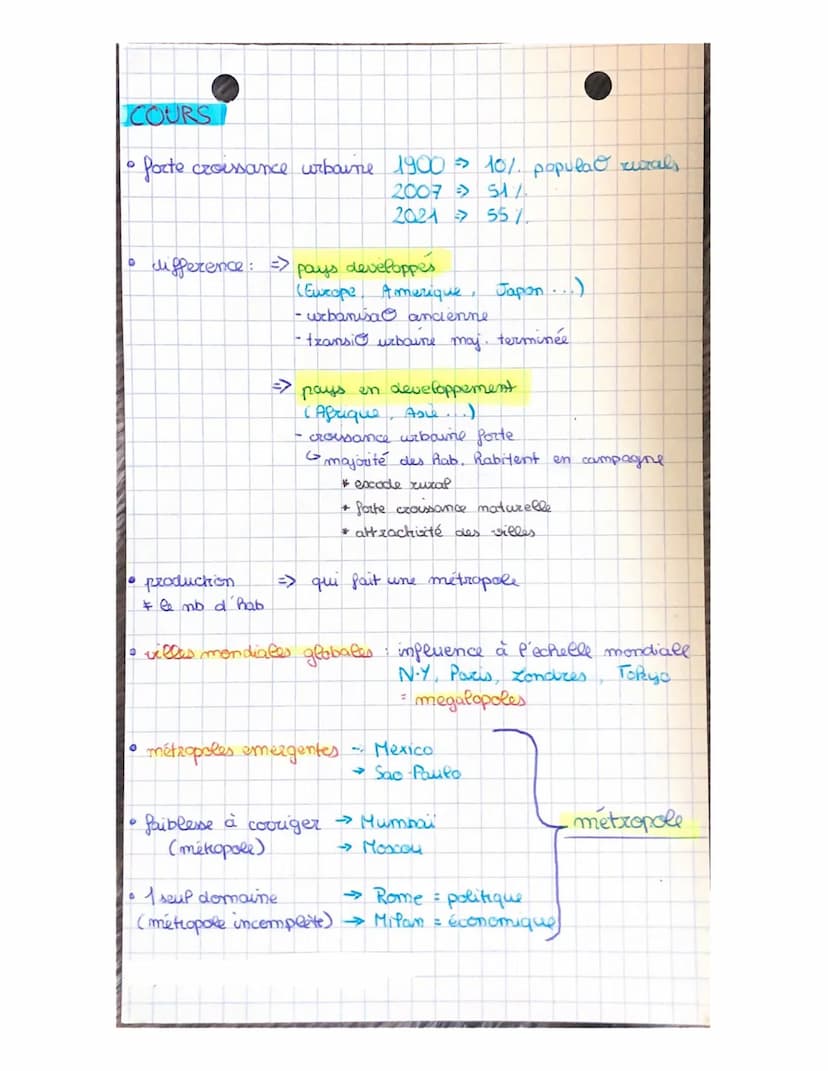 COURS
• forte croissance urbaine 1900 => 10%. populaO rurals
2007 => 51%.
2021 => 55%.
• difference : => pays developpés
(Europe, Amerique, Japon ...)
- urbanisaO ancienne
- transiO urbaine maj. terminée
=> pays en developpement
(Afrique, Asie ...)
- croissance urbaine forte
↳ majorité des hab. habitent en campagne
* exode rural
* forte croissance naturelle
* attractivité des villes
• production => qui fait une métropole
≠ le nb d'hab
• villes mondiales globales : influence à l'echelle mondiale
N-Y, Paris, Londres, Tokyo
= megalopoles
• métropoles emergentes → Mexico
→ Sao-Paulo
• faiblesse à corriger → Mumbaï
(métropole) → Moscou
métropole
• 1 seul domaine → Rome = politique
(métropole incomplète) → Milan = économique